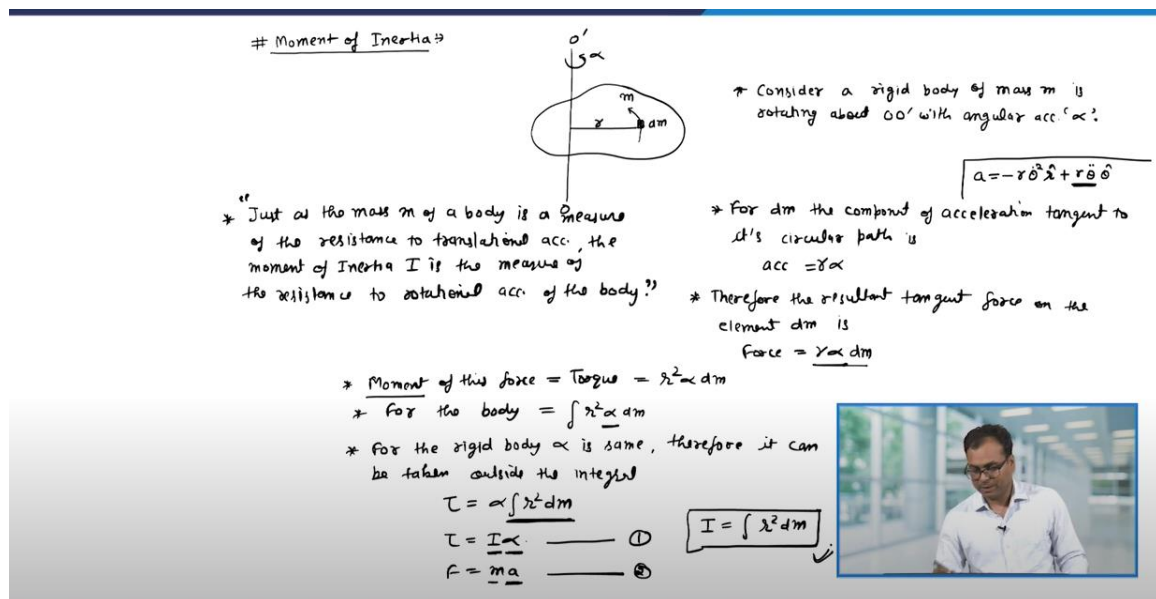 # Moment of Inertia :→
O'
α
m
r
dm
O
* Consider a rigid body of mass m is
rotating about OO' with angular acc. 'α'.
a = -rθ̇² r̂ + rθ̈ θ̂
* "Just as the mass m of a body is a measure
of the resistance to translational acc., the
moment of Inertia I is the measure of
the resistance to rotational acc. of the body."
* For dm the compont of acceleration tangent to
it's circular path is
acc = rα
* Therefore the resultant tangent force on the
element dm is
Force = rα dm
* Moment of this force = Torque = r²α dm
* For the body = ∫ r² α dm
* For the rigid body α is same, therefore it can
be taken outside the integral
τ = α ∫ r² dm
τ = Iα ——— ①
F = ma ——— ②
I = ∫ r² dm